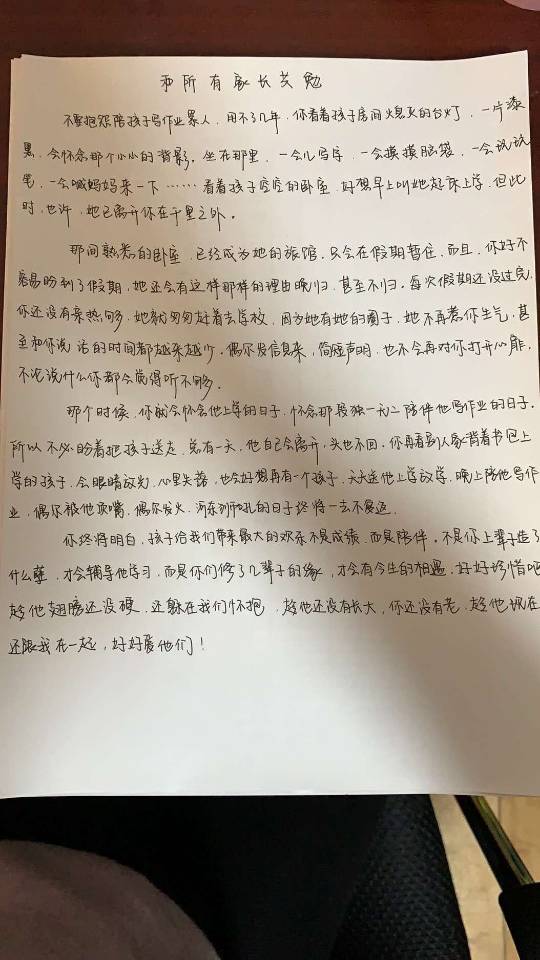 和所有家长共勉
不要抱怨陪孩子写作业累人，用不了几年，你看着孩子房间熄灭的台灯，一片漆
黑，会怀念那个小小的背影。坐在那里，一会儿写字，一会摸摸脑袋，一会说说
笔，一会喊妈妈来一下……看着孩子空空的卧室，好想早上叫她起床上学，但此
时，也许，她已离开你在千里之外。
那间熟悉的卧室，已经成为她的旅馆，只会在假期暂住，而且，你好不
容易盼到了假期，她还会有这样那样的理由晚归，甚至不归。每次假期还没过完，
你还没有亲热够，她就匆匆赶着去学校，因为她有她的圈子，她不再惹你生气，甚
至和你说话的时间都越来越少。偶尔发信息来，简短声明，也不会再对你打开心扉，
不论说什么你都会觉得听不够。
那个时候，你就会怀念他上学的日子，怀念那段独一无二陪伴他写作业的日子。
所以不必盼着把孩子送走，总有一天，他自己会离开，头也不回，你再看到人家背着书包上
学的孩子，会眼睛放光，心里失落，也会好想再有一个孩子，天天送他上学放学，晚上陪他写作
业，偶尔被他顶嘴，偶尔发火，河东狮吼的日子终将一去不复返。
你终将明白，孩子给我们带来最大的欢乐不是成绩，而是陪伴。不是你上辈子造了
什么孽，才会辅导他学习，而是你们修了几辈子的缘，才会有今生的相遇，好好珍惜吧
趁他翅膀还没硬，还躲在我们怀抱，趁他还没有长大，你还没有老，趁他现在
还跟我在一起，好好爱他们！